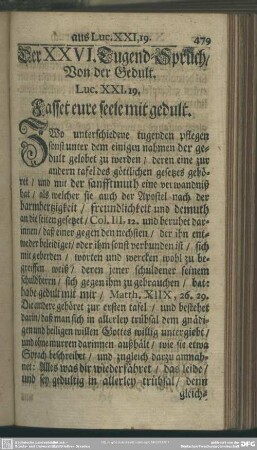 aus Luc. XXI, 19.
479
Der XXVI. Tugend-Spruch/
Von der Gedult.
Luc. XXI. 19.
Fasset eure seele mit gedult.
ZWo unterschiedene tugenden pflegen
sonst unter dem einigen nahmen der ge-
dult gelobet zu werden / deren eine zur
andern tafel des göttlichen gesetzes gehö-
ret / und mit der sanfftmuth eine verwandniß
hat / als welcher sie auch der Apostel nach der
barmhertzigkeit / freundlichkeit und demuth
an die seiten gesetzet / Col. III. 12. und beruhet dar-
innen / daß einer gegen den nechsten / der ihn ent-
weder beleidiget / oder ihm sonst verbunden ist / sich
mit geberden / worten und wercken wohl zu be-
greiffen weiß / deren jener schuldener seinem
schuldherrn / sich gegen ihm zu gebrauchen / bate
habe gedult mit mir / Matth. XIIX, 26. 29.
Die andere gehöret zur ersten tafel / und bestehet
darin / daß man sich in allerley trübsal dem gnädi-
gen und heiligen willen Gottes willig untergiebt /
und ohne murren darinnen außhält / wie sie etwa
Syrach beschreibet / und zugleich darzu anmah-
net: Alles was dir wiederfähret / das leide /
und sey gedultig in allerley trübsal / denn
gleich-